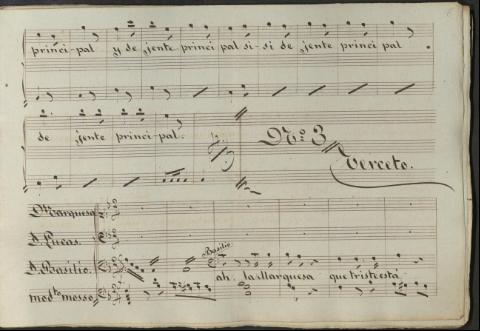 princi-pal y de jente principal si-si de jente princi pal
de jente princi pal.
Nº. 3
Terceto.
Marquesa
D. Lucas.
D. Basilio.
Basilio
ah. la Marquesa que triste está
modto mosso